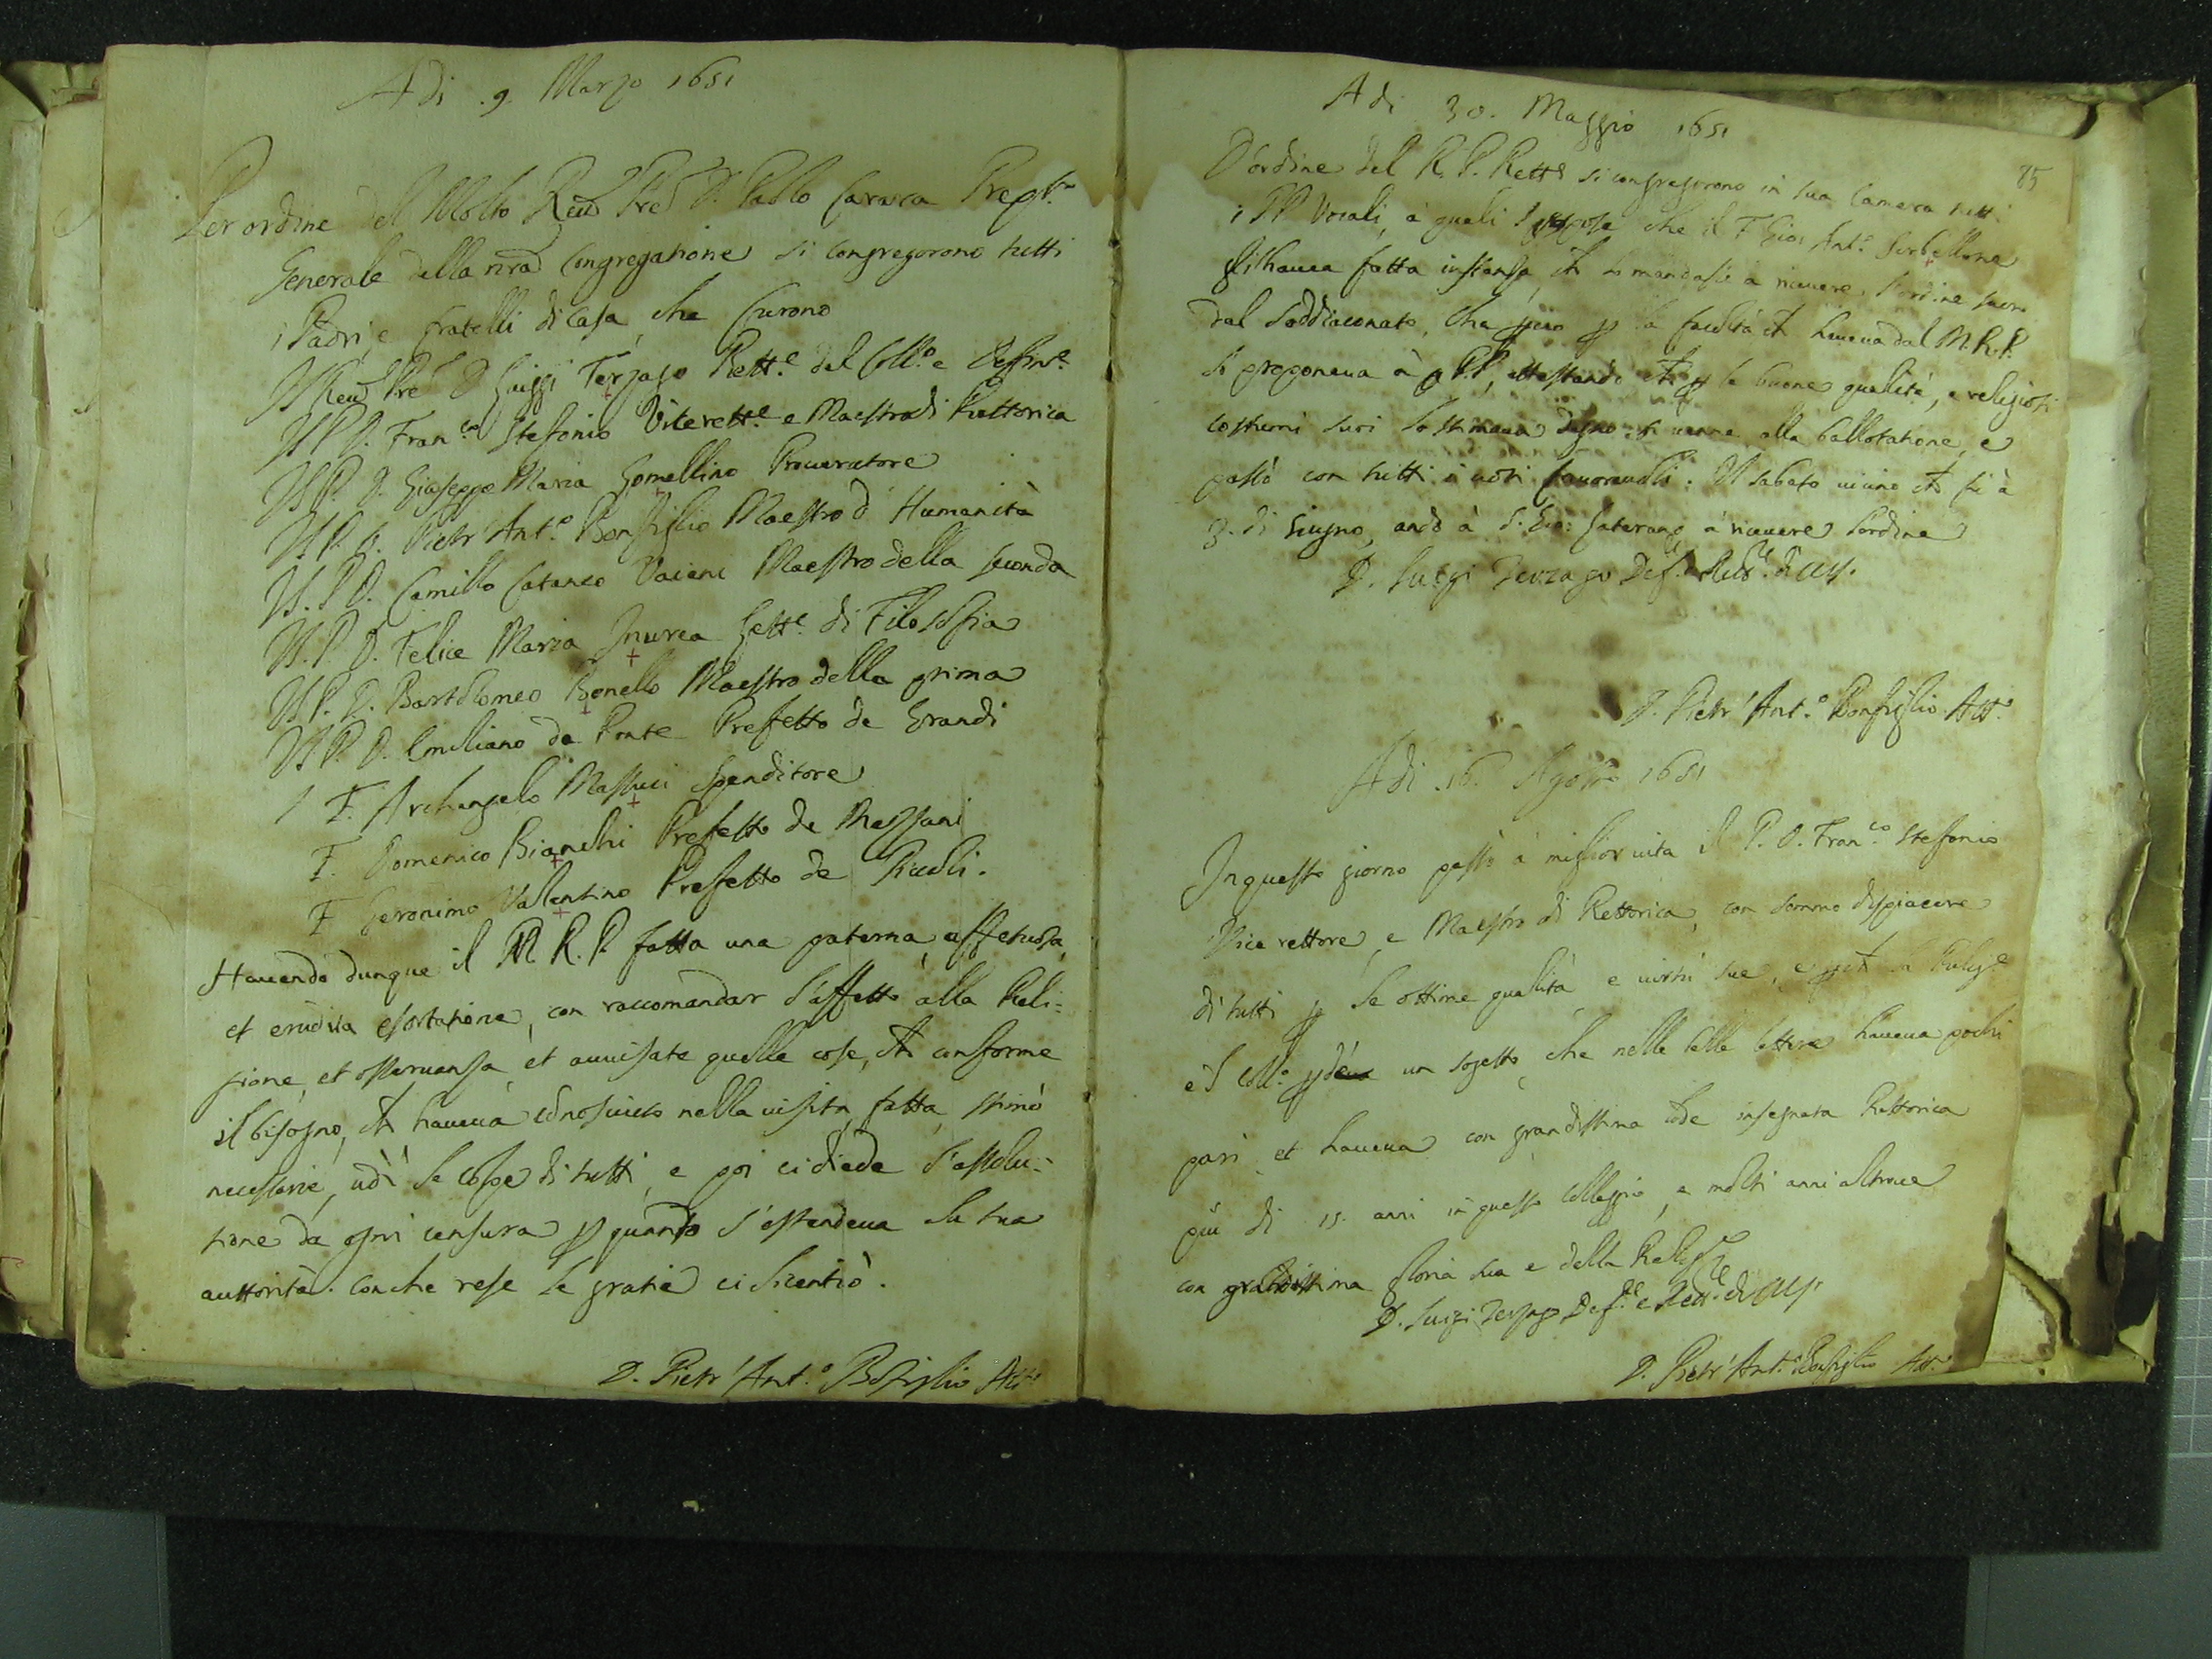 Adi .9. Marzo 1651
Per ordine del Molto Reu.do Pre D. Paolo Carrara Prep.to
Generale della nra Congregatione si congregorono tutti
i Padri, e fratelli di casa, che furono
Il Reu.do Pre D. Luiggi Terzago Rett.e del Coll.o e Deffin.e
Il P. D. Fran.co Stefonio Vicerett.e e Maestro di Rettorica
Il P. D. Gioseppe Maria Gomellino Procuratore
Il P. D. Pietr'Ant.o Bonfiglio Maestro d'Humanità
Il P. D. Camillo Cataneo Vaiani Maestro della seconda
Il P. D. Felice Maria Inurea Lett.e di Filosofia
Il P. D. Bartolomeo Bonello Maestro della prima
Il P. D. Emiliano da Ponte Prefetto de Grandi
F. Archangelo Massuci Spenditore
F. Domenico Bianchi Prefetto de Mezzani
F. Geronimo Valentino Prefetto de Picoli.
Hauendo dunque il M. R. P. fatta una paterna, affetuosa,
et erudita esortatione, con raccomandar l'affetto alla Reli=
gione, et osseruanza, et auuisate quelle cose, che conforme
il bisogno, che haueua conosciuto nella uisita fatta, stimò
necessarie, udì le colpe di tutti, e poi ci diede l'assolu=
tione da ogni censura p quanto s'estendeua la sua
auttorità. con che rese le gratie ci licentiò.
D. Pietr'Ant.o Bofiglio Att.o
85
Adi 30. Maggio 1651
D'ordine del R. P. Rett.e si congregorono in sua Camera tutti
i PP. Vocali, à quali espose che il F. Gio: Ant.o Serbellone
gli haueua fatta instanza, che lo mandasse à riceuere l'ordine sacro
del Soddiaconato, che però p la facoltà che haueua dal M.R.P.
lo proponeua à PP., attestando che p le buone qualità, e religiosi
costumi suoi lo stimaua degno. si uenne alla ballotatione, e
passò con tutti i uoti fauoreuoli. Il sabato uicino che fù à
3. di Giugno, andò à S. Gio: Laterano à riceuere l'ordine
D. Luigi Terzago Def.re Rett.e
D. Pietr'Ant.o Bonfiglio Att.o
Adi .16. Agosto 1651
In questo giorno passò à miglior uita il P. D. Fran.co Stefonio
Vice rettore, e Maestro di Rettorica, con sommo dispiacere
di tutti p le ottime qualità e uirtù sue, e pche la Relig.e
e'l Coll.o pde un sogetto, che nelle belle lettere haueua pochi
pari, et haueua con grandissima lode insegnata Rettorica
più di 15. anni in questo Colleggio, e molti anni altroue
con grandissima gloria sua e della Relig.e
D. Luigi Terzago Def.re e Rett.e
D. Pietr'Ant.o Bonfiglio Att.o